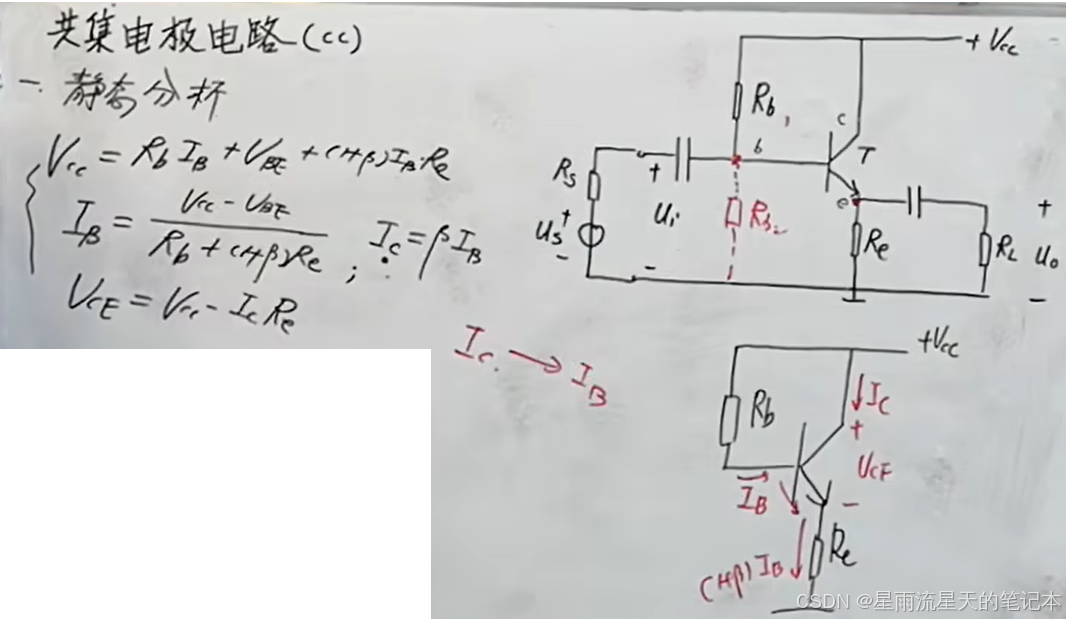 共集电极电路-(CC)
一. 静态分析
Vcc = Rb IB + VBE + (1+β)IB·Re
IB = (Vcc - UBE) / (Rb + (1+β)Re) ; IC = βIB
UCE = Vcc - Ic Re
Ic. → IB
+Vcc
Rb1
c
b
T
e
Rs
+
Ui
Us
+
-
-
Rb2
Re
RL
+
Uo
-
+Vcc
Rb
IC
+
UCE
-
IB
Re
(1+β)IB
CSDN @星雨流星天的笔记本